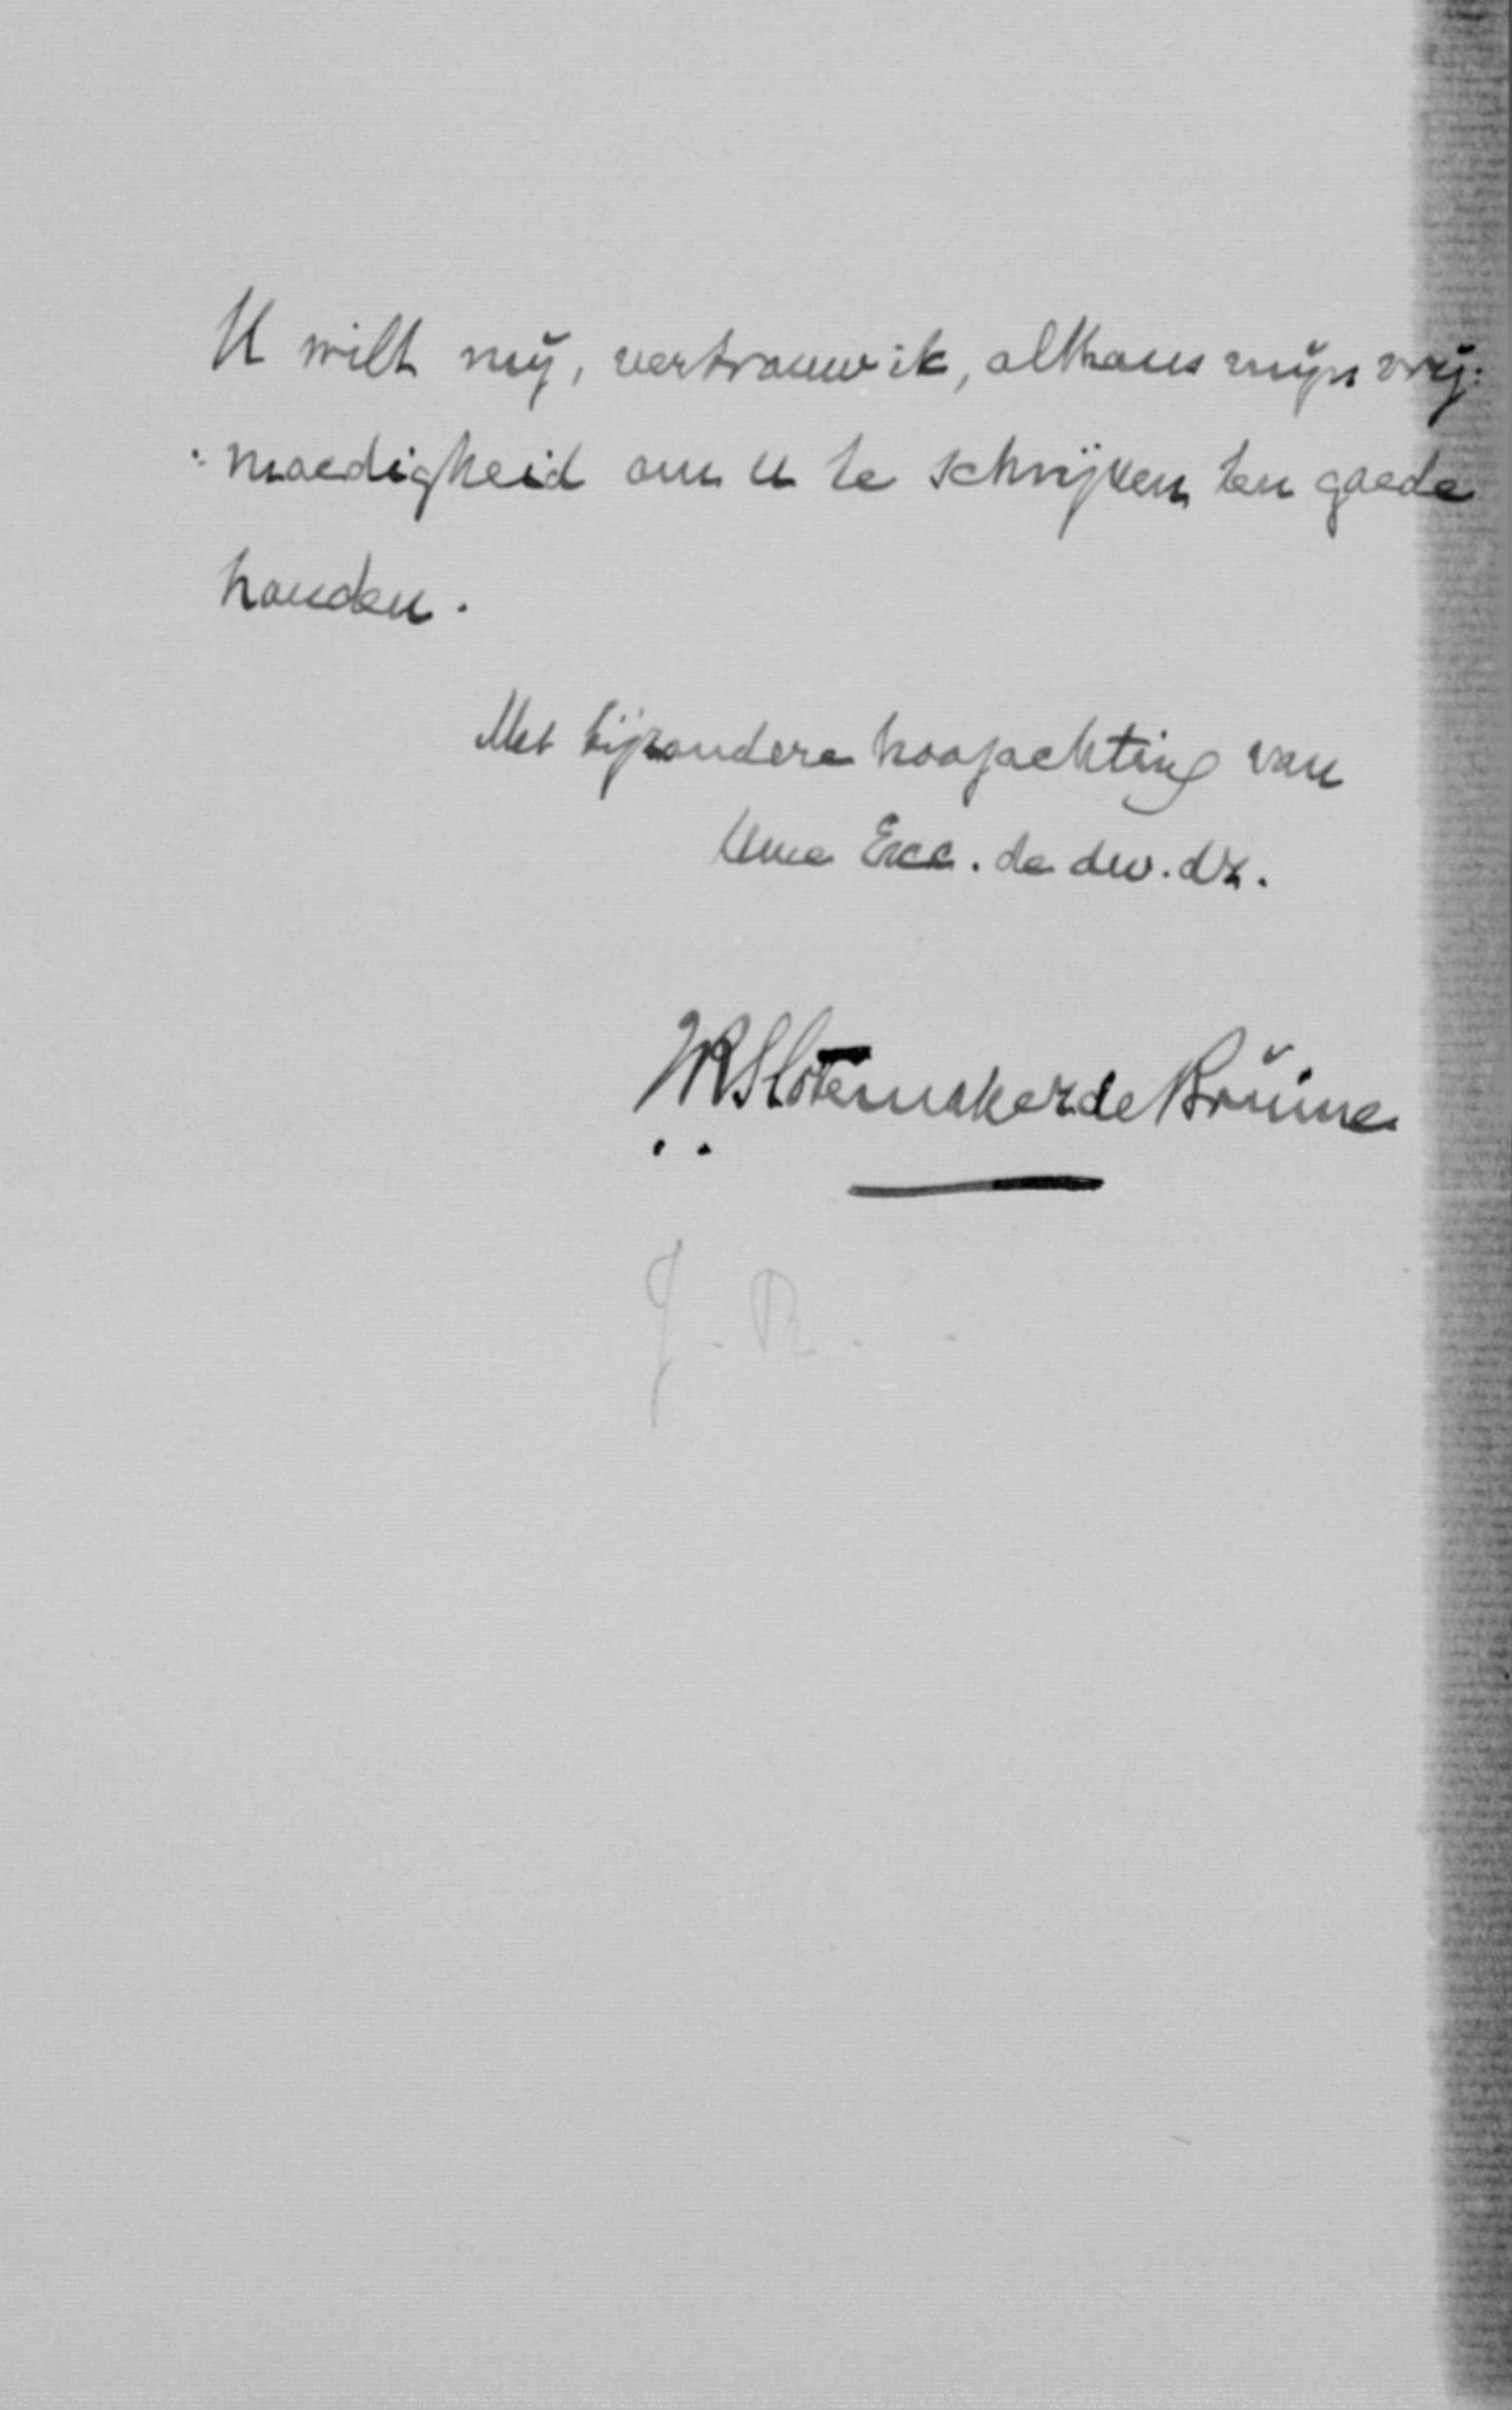 U wilt mij, vertrouw ik, althans mijn vrij:
:moedigheid om u te schrijven ten goede
houden.
Met bijzondere hoogachting van
Uwe Exc. de dw. dr.
JRSlotemaker de Bruïne
J. R.